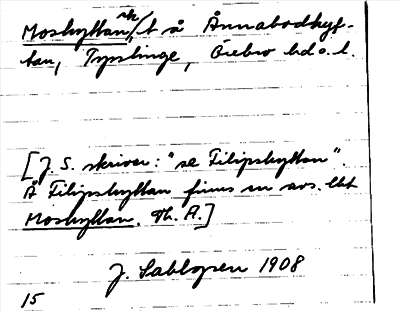 Moshyttan, t å Ånnabodahyt-
tan, Tysslinge, Örebro hd o. l.
[J. S. skriver: "se Filipshyttan".
Å Filipshyttan finns en avs. lht
Moshyttan. Th. A.]
J. Sahlgren 1908
15